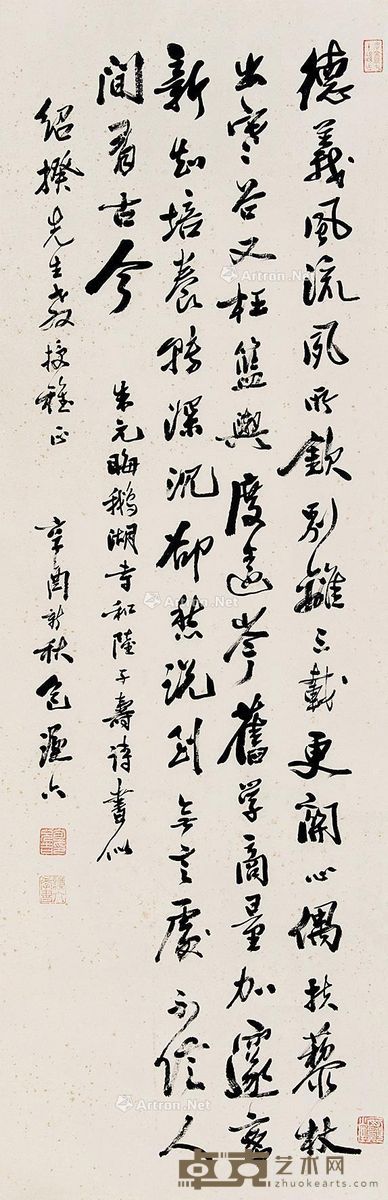 德義風流夙所欽別離三載更關心偶扶藜杖
出寒谷又枉籃輿度遠岑舊学商量加邃密
新知培養轉深沉却愁說到無言處不信人
間有古今
朱元晦鵝湖寺和陸子壽詩書似
紹揆先生教授雅正
辛酉新秋包謙六
Artron.Net
Artron.Net
Artron.Net
Artron.Net
Artron.Net
Artron.Net
卓克艺术网
zhuokearts.com